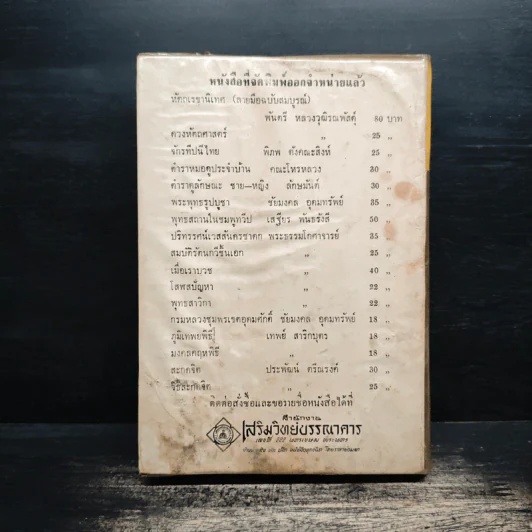 หนังสือที่จัดพิมพ์ออกจำหน่ายแล้ว
หัตถเรขานิเทศ (ลายมือฉบับสมบูรณ์)
พันตรี หลวงวุฒิรณพัสดุ์ 80 บาท
ดวงหัตถศาสตร์ ,, 25 ,,
จักรทีปนีไทย พิภพ ตังคณะสิงห์ 25 ,,
ตำราหมอดูประจำบ้าน คณะโหรหลวง 30 ,,
ตำราดูลักษณะ ชาย—หญิง ลักษมันต์ 30 ,,
พระพุทธรูปบูชา ชัยมงคล อุดมทรัพย์ 35 ,,
พุทธสถานในชมพูทวีป เสฐียร พันธรังสี 50 ,,
ปริทรรศน์เวสสันดรชาดก พระธรรมโกศาจารย์ 35 ,,
สมบัติรัตนกวีชั้นเอก ,, 25 ,,
เมื่อเราบวช ,, 40 ,,
โสฬสปัญหา ,, 22 ,,
พุทธสาวิกา ,, 22 ,,
กรมหลวงชุมพรเขตอุดมศักดิ์ ชัยมงคล อุดมทรัพย์ 18 ,,
ภูมิเทพยพิธี เทพย์ สาริกบุตร 18 ,,
มงคลคฤหพิธี ,, 18 ,,
สะกดจิต ประพัฒน์ ตรีณรงค์ 30 ,,
วิธีสะกดจิต ,, 25 ,,
ติดต่อสั่งซื้อและขอรายชื่อหนังสือได้ที่
สำนักงาน
เสริมวิทย์บรรณาคาร